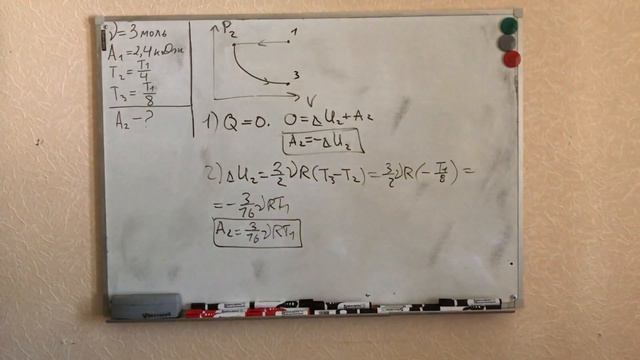 ν = 3 моль
A₁ = 2,4 кДж
T₂ = T₁/4
T₃ = T₁/8
A₂ - ?
P
2
1
3
V
1) Q = 0. 0 = ΔU₂ + A₂
A₂ = -ΔU₂
2) ΔU₂ = 3/2 νR(T₃ - T₂) = 3/2 νR(-T₁/8) =
= -3/16 νRT₁
A₂ = 3/16 νRT₁